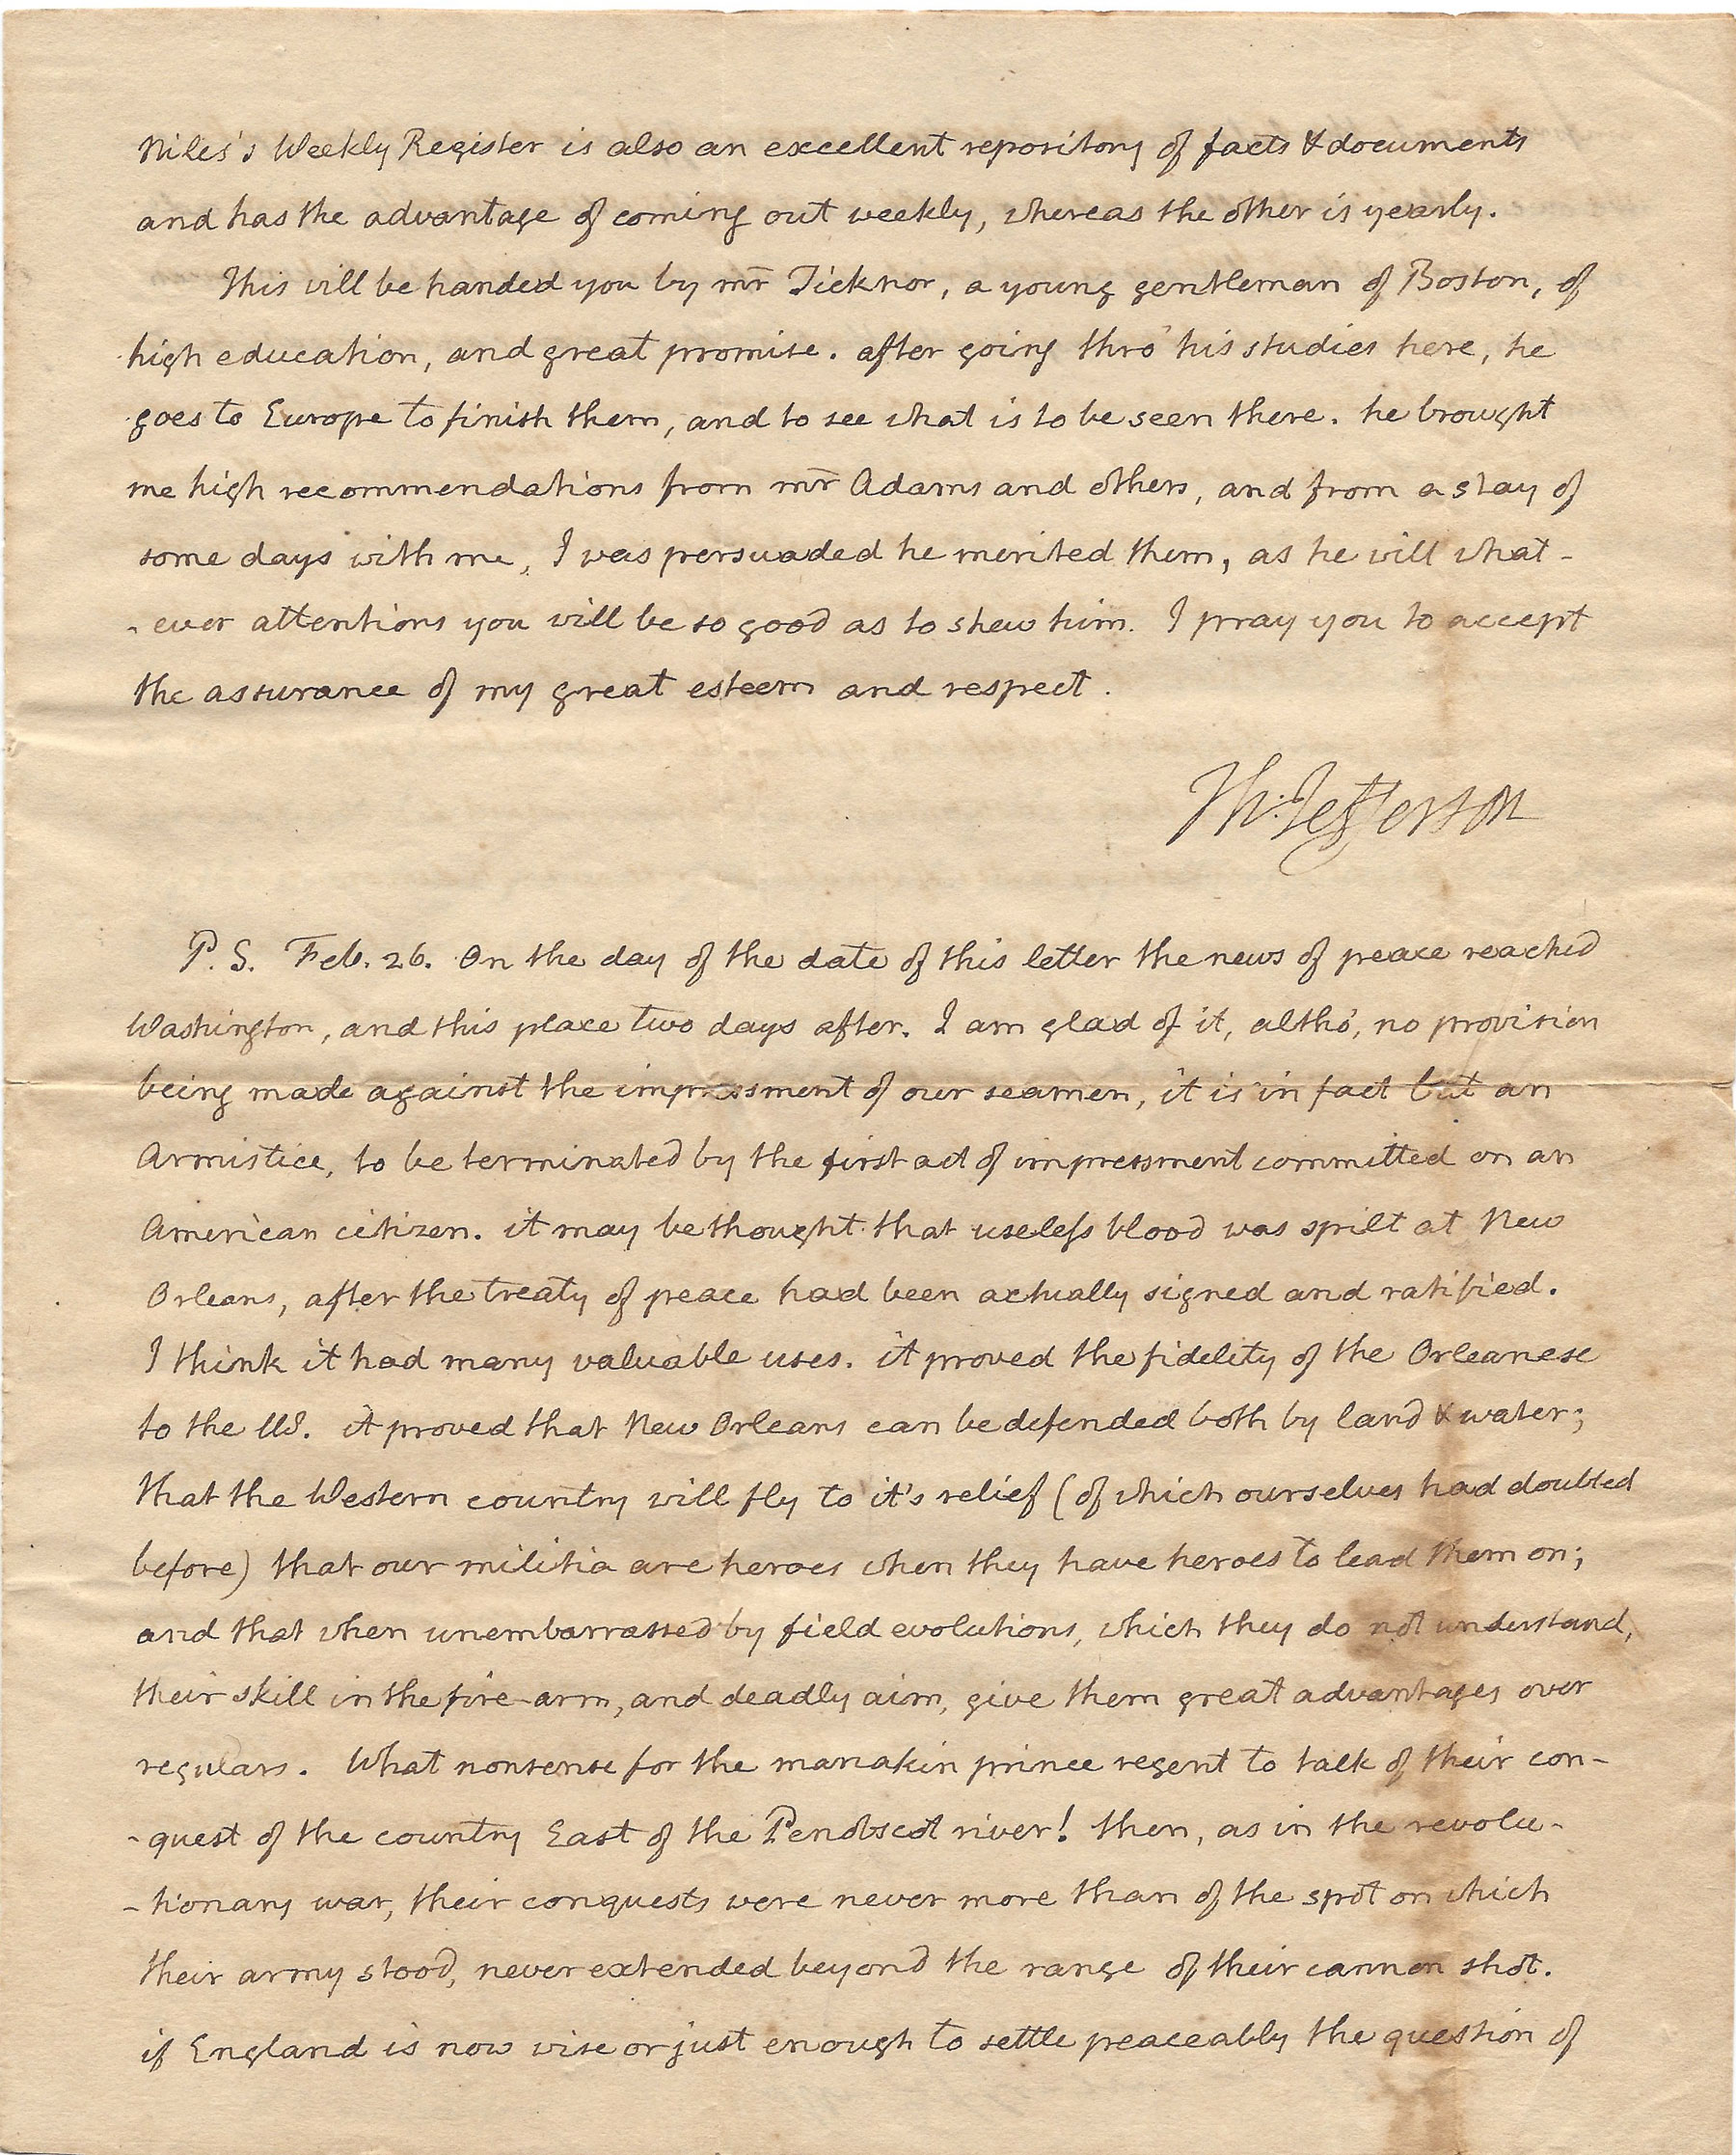 Niles's Weekly Register is also an excellent repository of facts & documents
and has the advantage of coming out weekly, whereas the other is yearly.
This will be handed you by mr Ticknor, a young gentleman of Boston, of
high education, and great promise. after going thro' his studies here, he
goes to Europe to finish them, and to see what is to be seen there. he brought
me high recommendations from mr Adams and others, and from a stay of
some days with me, I was persuaded he merited them, as he will what-
-ever attentions you will be so good as to shew him. I pray you to accept
the assurance of my great esteem and respect.
Th: Jefferson
P.S. Feb. 26. On the day of the date of this letter the news of peace reached
Washington, and this place two days after. I am glad of it, altho', no provision
being made against the impressment of our seamen, it is in fact but an
Armistice, to be terminated by the first act of impressment committed on an
American citizen. it may be thought that useleſs blood was spilt at New
Orleans, after the treaty of peace had been actually signed and ratified.
I think it had many valuable uses. it proved the fidelity of the Orleanese
to the US. it proved that New Orleans can be defended both by land & water;
that the Western country will fly to it's relief (of which ourselves had doubted
before) that our militia are heroes when they have heroes to lead them on;
and that when unembarrassed by field evolutions, which they do not understand,
their skill in the fire-arm, and deadly aim, give them great advantages over
regulars. What nonsense for the manakin prince regent to talk of their con-
-quest of the country East of the Penobscot river! then, as in the revolu-
-tionary war, their conquests were never more than of the spot on which
their army stood, never extended beyond the range of their cannon shot.
if England is now wise or just enough to settle peaceably the question of